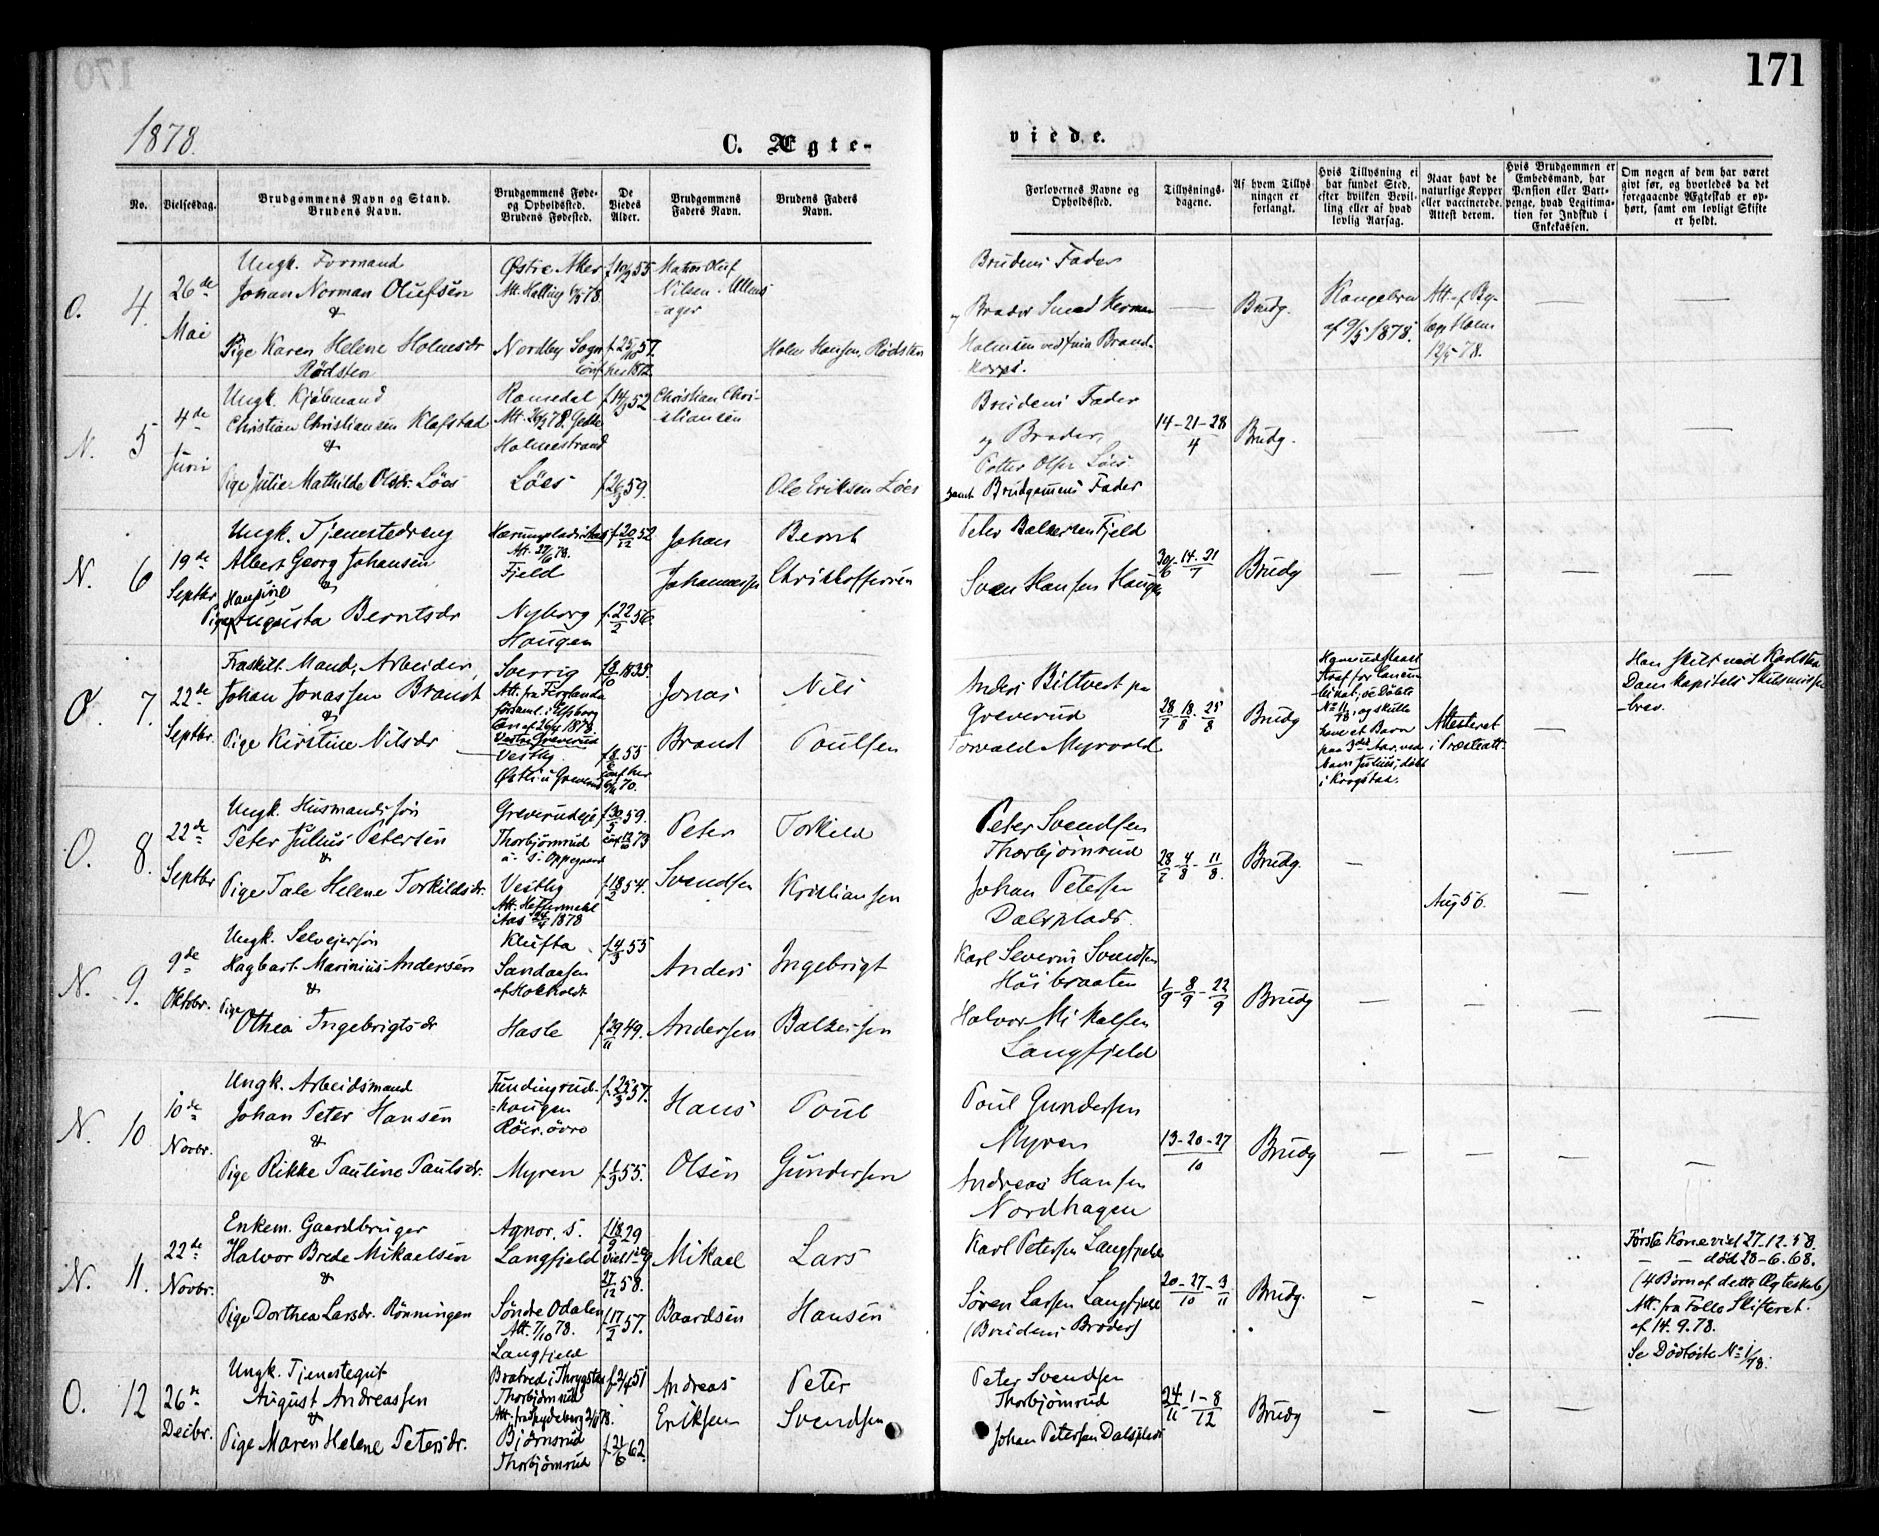 171
1878.
C. Ægte-
viede.
No.
Vielsesdag.
Brudgommens Navn og Stand.
Brudens Navn.
Brudgommens Føde-
og Opholdssted.
Brudens Fødested.
De
Viedes
Alder.
Brudgommens
Faders Navn.
Brudens Faders
Navn.
Forlovernes Navne og
Opholdssted.
Tillysnings-
dagene.
Af hvem Tillys
ningen er
forlangt.
Hvis Tillysning ei
har fundet Sted,
efter hvilken Bevil-
ling eller af hvad
lovlig Aarsag.
Naar havt de
naturlige Kopper
eller vaccinerede.
Attest derom.
Hvis Brudgommen er
Embedsmand, har
Pension eller Vart-
penge, hvad Legitima-
tion for Indskud i
Enkekassen.
Om nogen af dem har været
givt før, og hvorledes da det
foregaaende Ægteskab er op-
hørt, samt om lovligt Skifte
er holdt.
O. 4.
26de
Mai
Ungk. Formand
Johan Norman Olufsen
&
Pige Karen Helene Holmsdr
Rødsten
Østre Aker
Nordby Sogn
f. 10/9 55
f. 25/10 57.
Nilsen
Holm Hansen, Rødsten
Brudens Fader
og Broder Smed Herman
Holmsen
Brudg.
af 9/5 1878.
12/5 78.
N. 5
4de
Juni
Ungk. Kjøbmand
Christian Christiansen Klafstad
&
Pige Julie Mathilde Olsdr. Löes
Ramedal
Holmestrand
Löes
52
59.
Christian Chri-
stiansen
Ole Eriksen Löes
Brudens Fader
og Broder,
Petter Olsen Löes
samt Brudgomens Fader
14-21-28
4
Brudg.
N. 6
19de
Septbr
Ungk. Tjenestedreng
Albert Georg Johansen
&
Pige Augusta Berntsdr
Fjeld
Nyborg
Haugen
f. 20/12 52
f. 22/2 56.
Johan
Johannessen
Bernt
Christoffersen
Peter Balzersen Fjeld
Sven Hansen Haugen
30/6-14-21/7
Brudg
O. 7.
22de
Septbr.
Fraskilt Mand, Arbeider,
Johan Jonassen Brandt
&
Pige Kirstine Nilsdr
Sverrig
Vestre Greverud
Vestby
Østli u Greverud
1835.
55
Jonas
Brand
Nils
Poulsen
Anders Biltvest paa
Greverud
Torvald Myrvold
28/7-18/8-25/8
Brudg
Attesteret
i Præsteatt
Han skilt ved Karlstad
Dom kapitels Skilsmisse-
brev.
O. 8.
22de
Septbr
Ungk. Husmandssøn
Peter Julius Petersen
&
Pige Tale Helene Torkildsdr.
Greverudeje
Thorbjørnrud
Oppegaard
Vestby
i Aas 1878
f. 30/5 59.
f. 18/2 54.
Peter
Svendsen
Torkild
Kristiansen
Peter Svendsen
Thorbjørnrud
Johan Petersen
Dalsplads.
28/7-4/8-11/8.
Brudg.
Aug 56.
N. 9.
9de
Oktbr.
Ungk. Selveiersøn
Hagbart Marinius Andersen
&
Pige
Othea Ingebrigtsdr
Klufta
Sandaasen
af Hokholdt
Haslc
f. 4/3 55
f. 29/11 49.
Anders
Andersen
Ingebrigt
Balzersen
Karl Severin Svendsen
Höibraaten
Halvor Mikalsen
Langfjeld
1/9-8/9-22/9
Brudg
N. 10
10de
Novbr.
Ungk. Arbeidsmand
Johan Peter Hansen
&
Pige Rikke Pauline Paulsdr.
Fundingrud-
haugen
Röer. övre
Myren
f. 25/3 57.
f. 1/3 55.
Hans
Olsen
Poul
Gundersen
Poul Gundersen
Myren
Andreas Hansen
Nordhagen
13-20-27
10
Brudg
N. 11.
22de
Novbr.
Enkem. Gaardbruger
Halvor Brede Mikaelsen
&
Pige Dorthea Larsdr. Rönningen
Agnor. S.
Langfjeld
Söndre Odalen
Att. 7/10 78.
Langfjeld
f. 18/9 29
27/12 58.
f. 17/2 57.
Mikael
Baardsen
Lars
Hansen
Karl Petersen Langfjeld
Sören Larsen Langfjeld
(Brudens Broder)
20-27/10-3/11
Brudg.
Første Kone viet 27-12-58.
— — död 28-6.68.
(4 Børn af dette Ægteskab)
Att. fra Follo Skifteret.
af 14.9.78.
Se Dødliste No 1/78.
O. 12
26de
Decbr.
Ungk. Tjenestegut
August Andreassen
&
Pige Maren Helene Petersdr.
Thorbjørnrud
Bjørnsrud
Thorbjørnrud
f. 2/4 51
f. 21/6 62.
Andreas
Eriksen
Peter
Svendsen
Peter Svendsen
Thorbjørnrud
Johan Petersen Dalsplads
24/11-1-8/12
Brudg